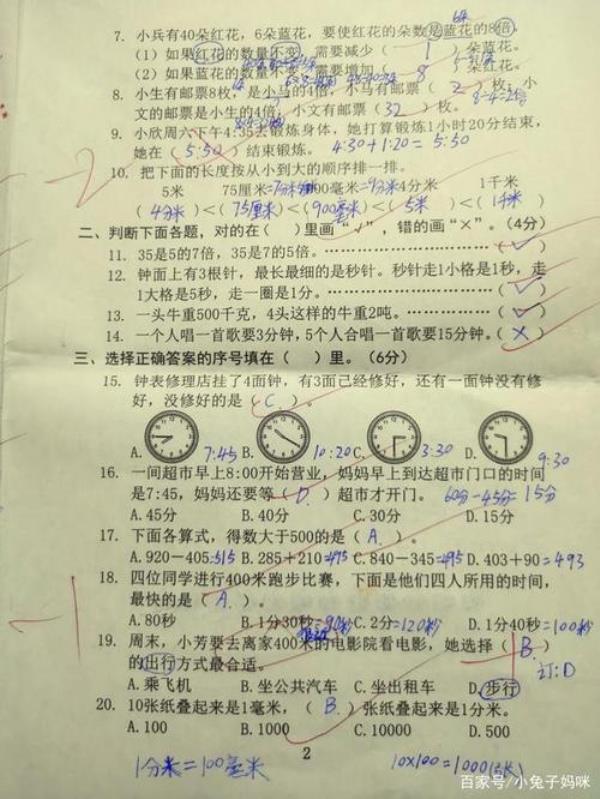 6朵
7. 小兵有40朵红花，6朵蓝花，要使红花的朵数是蓝花的8倍，
（1）如果红花的数量不变，需要减少（ 1 ）朵蓝花。
（2）如果蓝花的数量不变，需要增加（ 8 ）朵红花。
8. 小生有邮票8枚，是小马的4倍，小马有邮票（ 2 ）枚；小
文的邮票是小生的4倍，小文有邮票（ 32 ）枚。
9. 小欣周六下午4:35去锻炼身体，她打算锻炼1小时20分结束，
她在（ 5:50 ）结束锻炼。 4:30+1:20=5:50
10. 把下面的长度按从小到大的顺序排一排。
5米 75厘米=7分米 900毫米=9分米 4分米 1千米
（4分米）<（75厘米）<（900毫米）<（5米）<（1千米）
二、判断下面各题，对的在（ ）里画“√”，错的画“×”。（4分）
11. 35是5的7倍，35是7的5倍。（√）
12. 钟面上有3根针，最长最细的是秒针。秒针走1小格是1秒，走
1大格是5秒，走一圈是1分。（√）
13. 一头牛重500千克，4头这样的牛重2吨。（√）
14. 一个人唱一首歌要3分钟，5个人合唱一首歌要15分钟。（×）
三、选择正确答案的序号填在（ ）里。（6分）
15. 钟表修理店挂了4面钟，有3面己经修好，还有一面钟没有修
好，没修好的是（ C. ）。
A. 7:45 B. 10:20 C. 3:30 D. 9:30
16. 一间超市早上8:00开始营业，妈妈早上到达超市门口的时间
是7:45，妈妈还要等（ D. ）超市才开门。 60分-45分=15分
A. 45分 B. 40分 C. 30分 D. 15分
17. 下面各算式，得数大于500的是（ A. ）。
A. 920-405=515 B. 285+210=495 C. 840-345=495 D. 403+90=493
18. 四位同学进行400米跑步比赛，下面是他们四人所用的时间，
最快的是（ A. ）。
A. 80秒 B. 1分30秒=90秒 C. 2分=120秒 D. 1分40秒=100秒
19. 周末，小芳要去离家400米的电影院看电影，她选择（ B. ）
的出行方式最合适。 订:D
A. 乘飞机 B. 坐公共汽车 C. 坐出租车 D. 步行
20. 10张纸叠起来是1毫米，（ B. ）张纸叠起来是1分米。
A. 100 B. 1000 C. 10000 D. 500
2
1分米=100毫米
10×100=1000(张)
百家号/小兔子妈咪